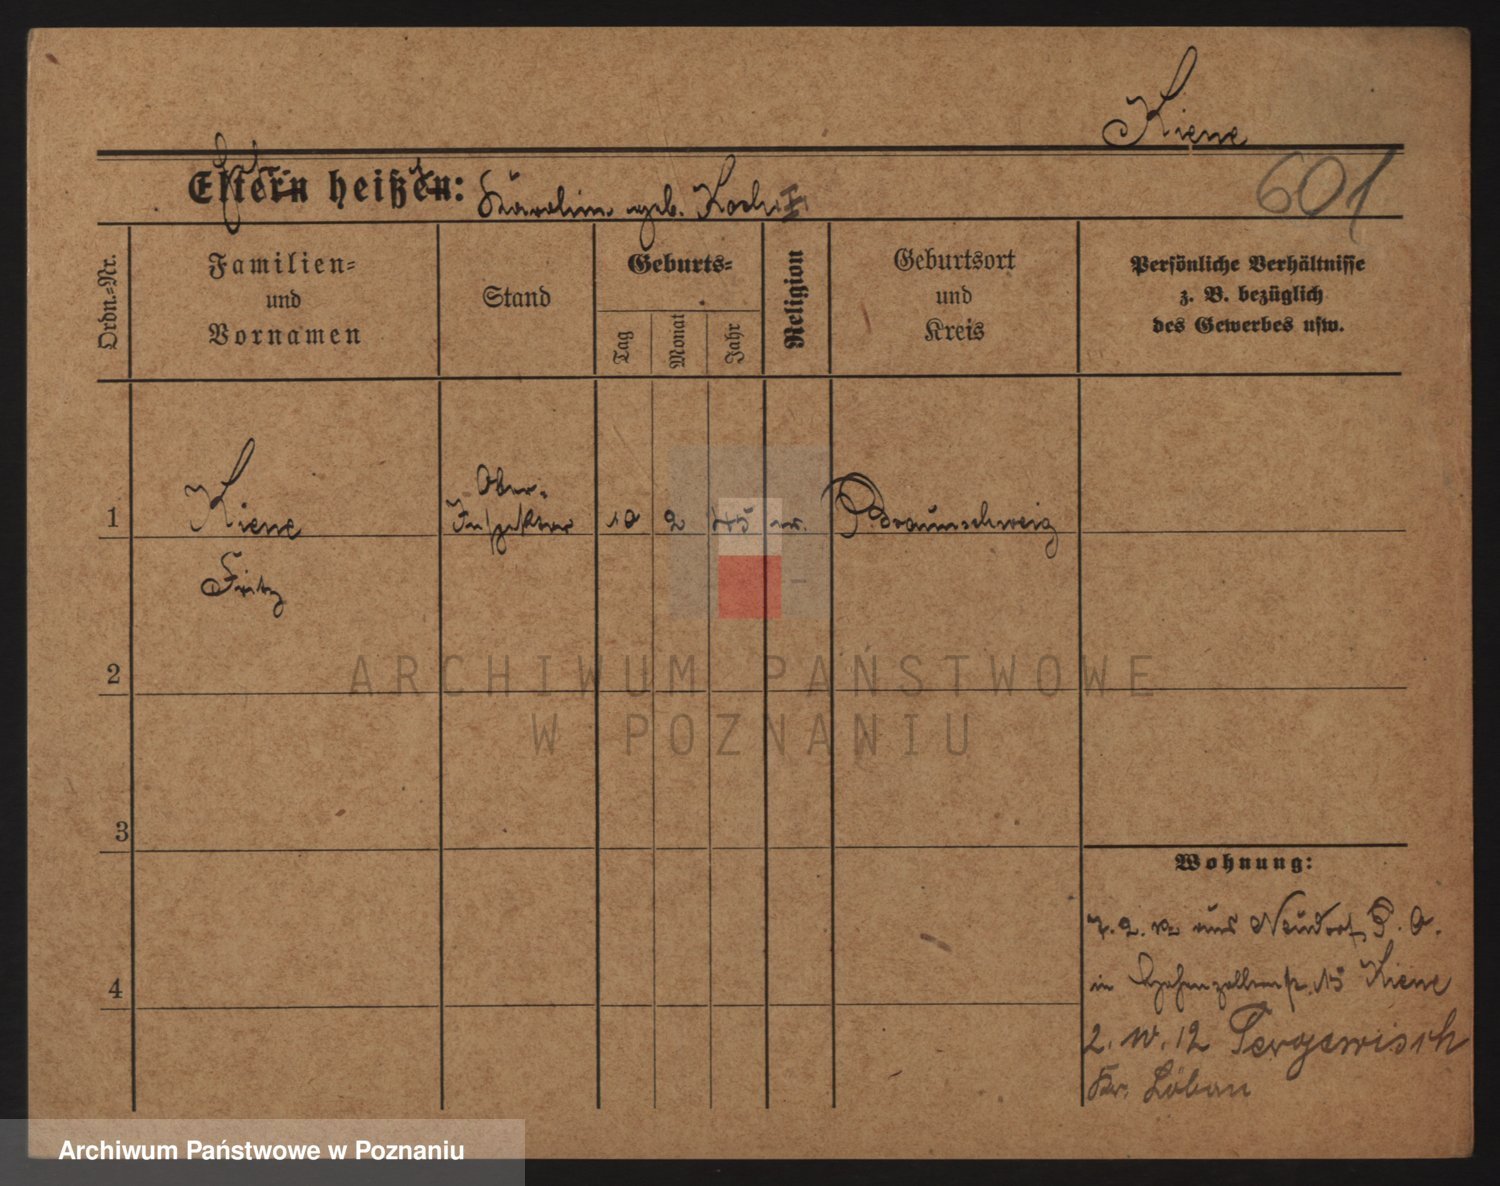 Kiene
Eltern heißen: geb. Koch
601
Ordn.-Nr.
Familien-
und
Vornamen
Stand
Geburts-
Tag
Monat
Jahr
Religion
Geburtsort
und
Kreis
Persönliche Verhältnisse
z. B. bezüglich
des Gewerbes usw.
Ober-
1 Kiene Inspektor 10 2 75 ev. Braunschweig
Fritz
2
3
4
Wohnung:
7. 2. 12 aus Neudorf, P. O.
in Hohenzollernstr. 15 Kiene
2. IV. 12 Tergewisch
Kr. Löbau
ARCHIWUM PAŃSTWOWE
W POZNANIU
Archiwum Państwowe w Poznaniu